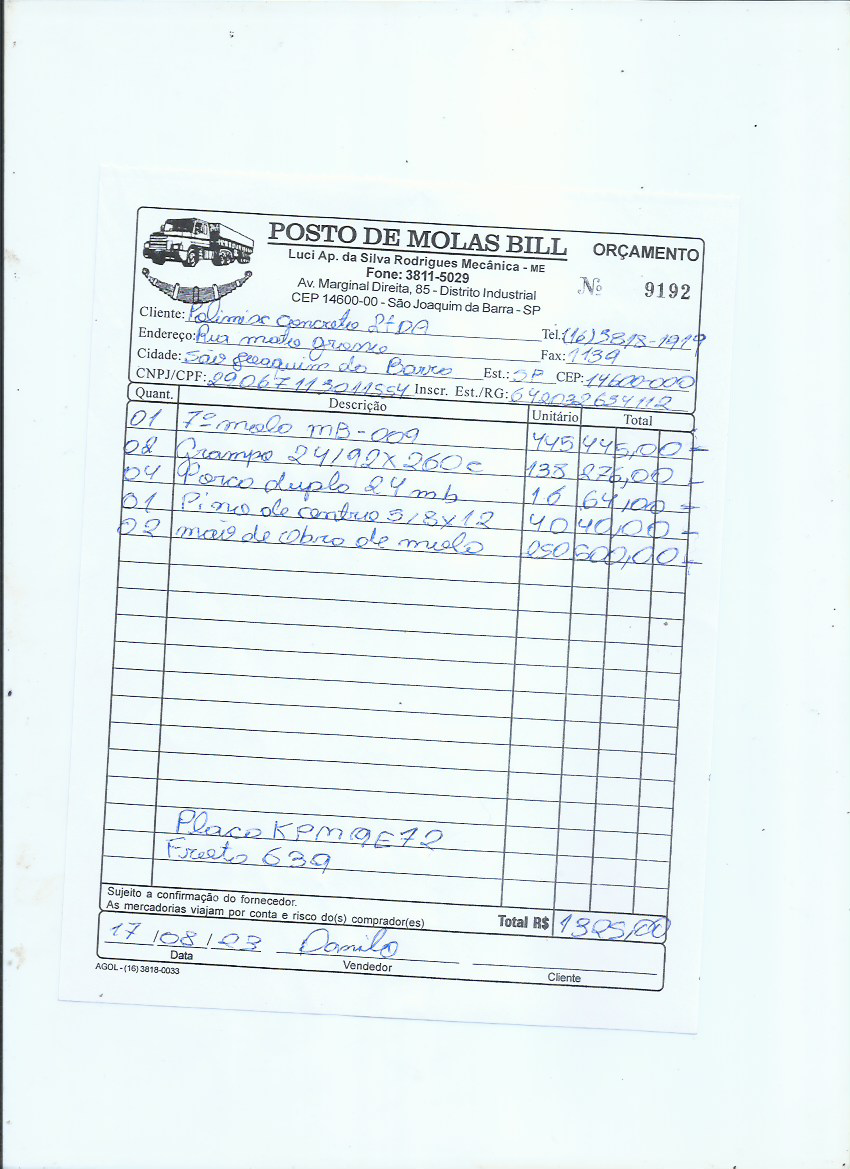 POSTO DE MOLAS BILL
ORÇAMENTO
Luci Ap. da Silva Rodrigues Mecânica - ME
Fone: 3811-5029
Av. Marginal Direita, 85 - Distrito Industrial
CEP 14600-00 - São Joaquim da Barra - SP
Nº 9192
Cliente: Polimix Concreto LtDA Tel. (16) 3818-1919
Endereço: Rua mato grosso Fax: 1139
Cidade: São Joaquim da Barra Est.: SP CEP: 14600-000
CNPJ/CPF: 29067113011554 Inscr. Est./RG: 642032654112
Quant. Descrição Unitário Total
01 7ª mola MB-009 445 445,00
02 Grampo 24/92X260c 138 276,00
04 Porca dupla 24 mb 16 64,00
01 Pino de centro 5/8x12 40 40,00
02 mão de obra de mola 250 500,00
Placa KPM9E72
Frota 639
Sujeito a confirmação do fornecedor.
As mercadorias viajam por conta e risco do(s) comprador(es)
Total R$ 1325,00
17/08/23 Danilo
Data Vendedor Cliente
AGOL - (16) 3818-0033